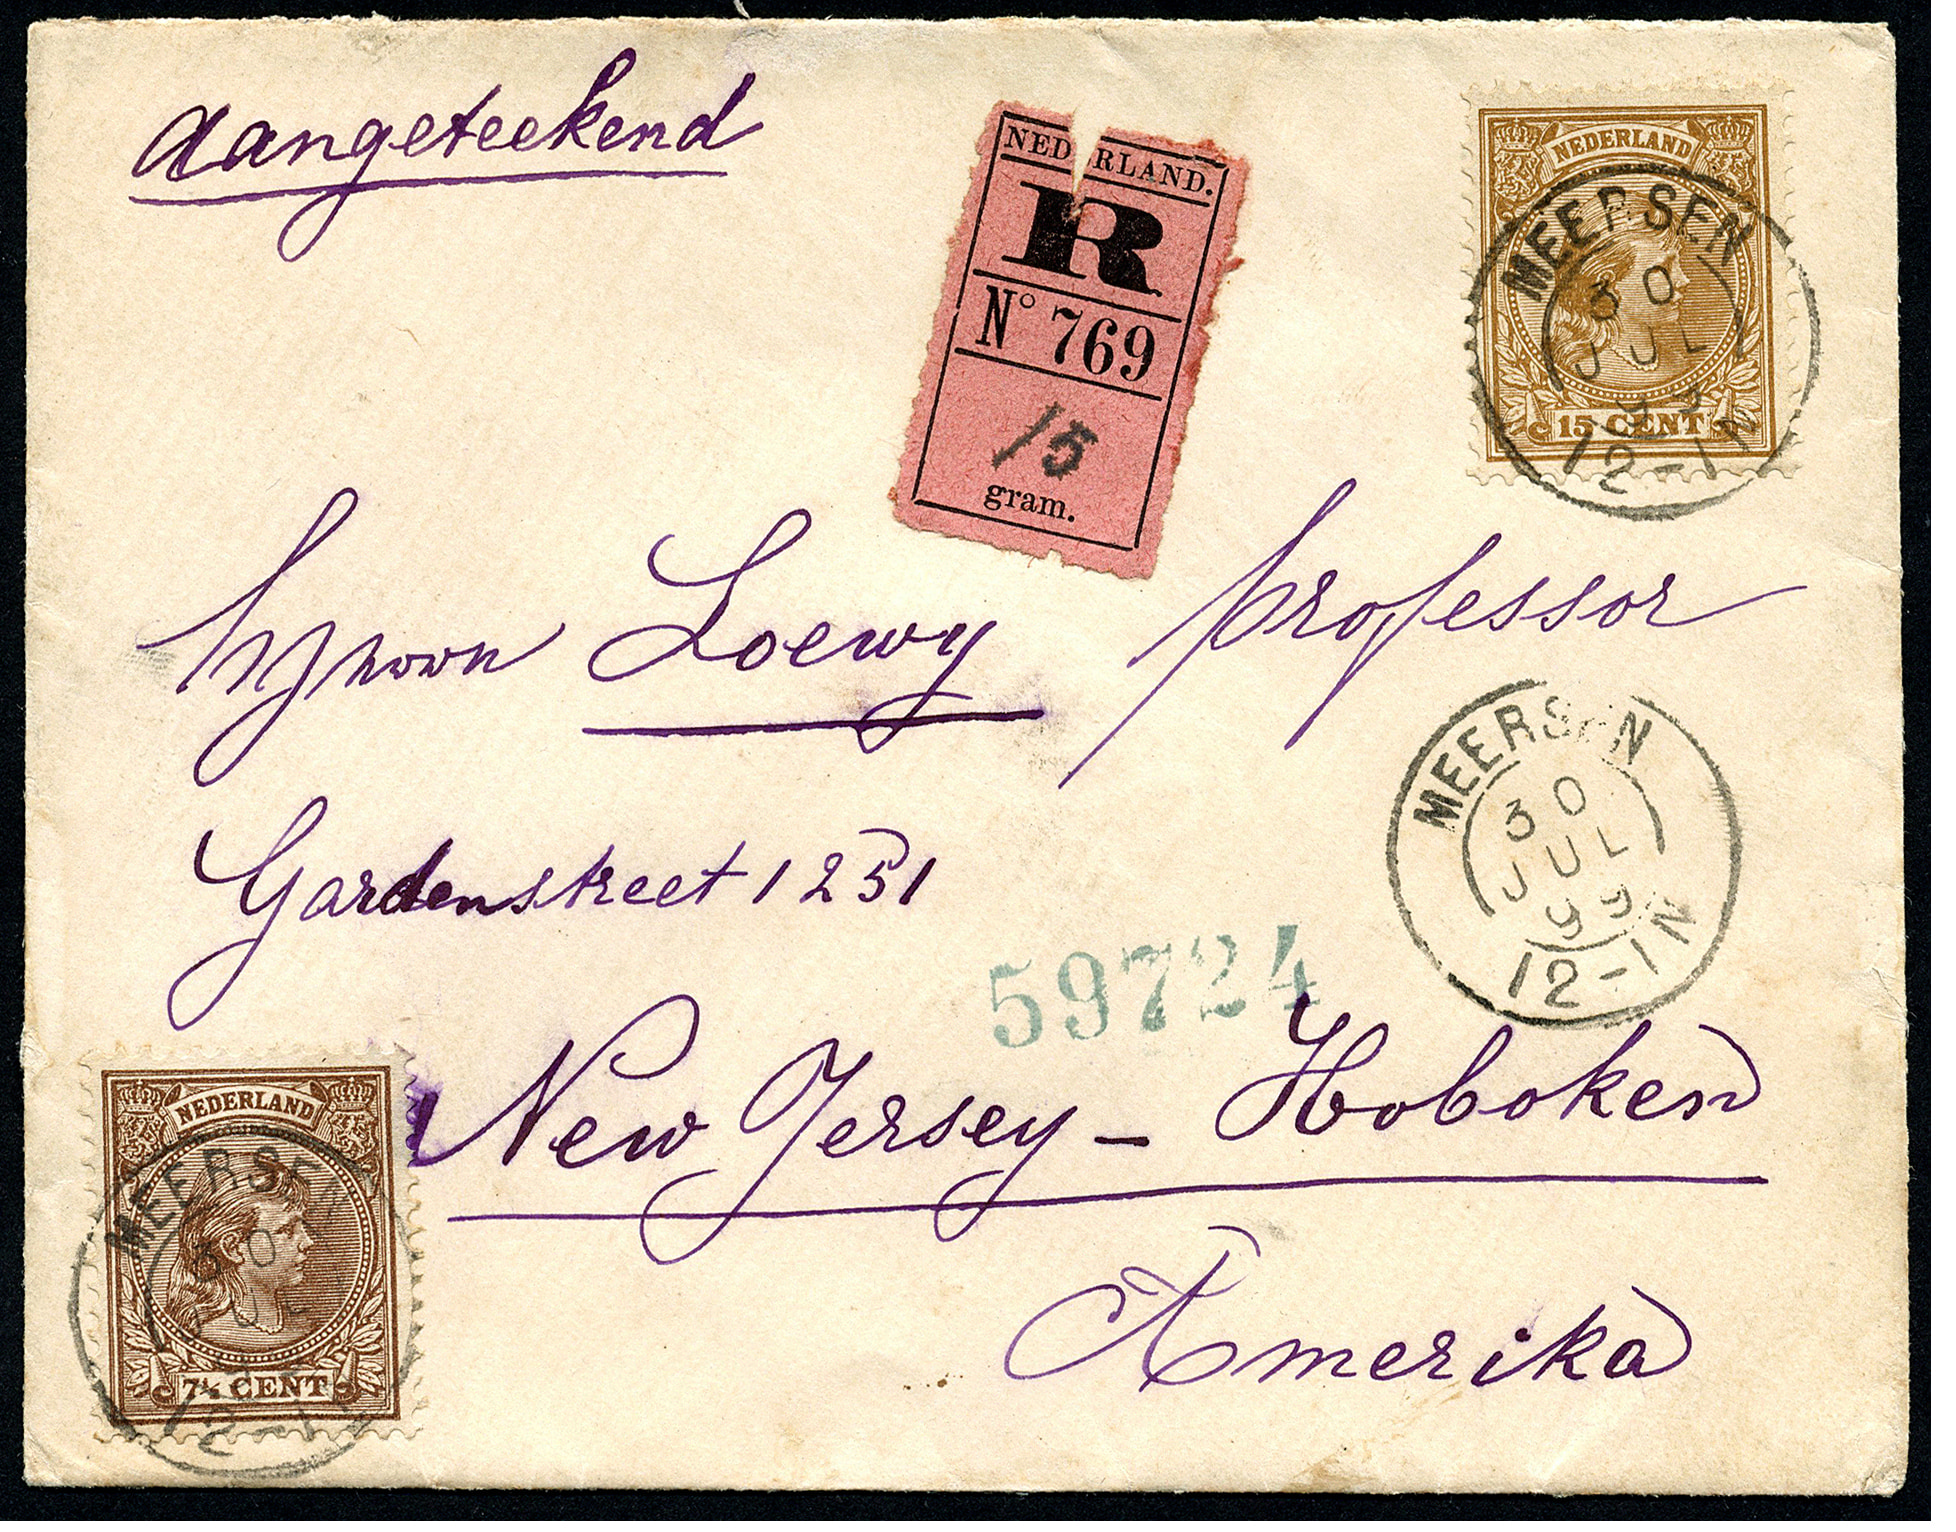 Aangeteekend
NEDERLAND.
R
No 769
15
gram.
NEDERLAND
15 CENT
MEERSEN
30
JUL
99
12-1N
Loewy professor
Gardenstreet 1251
MEERSEN
30
JUL
99
12-1N
59724
New Jersey - Hoboken
Amerika
NEDERLAND
7½ CENT
MEERSEN
30
JUL
12-1N